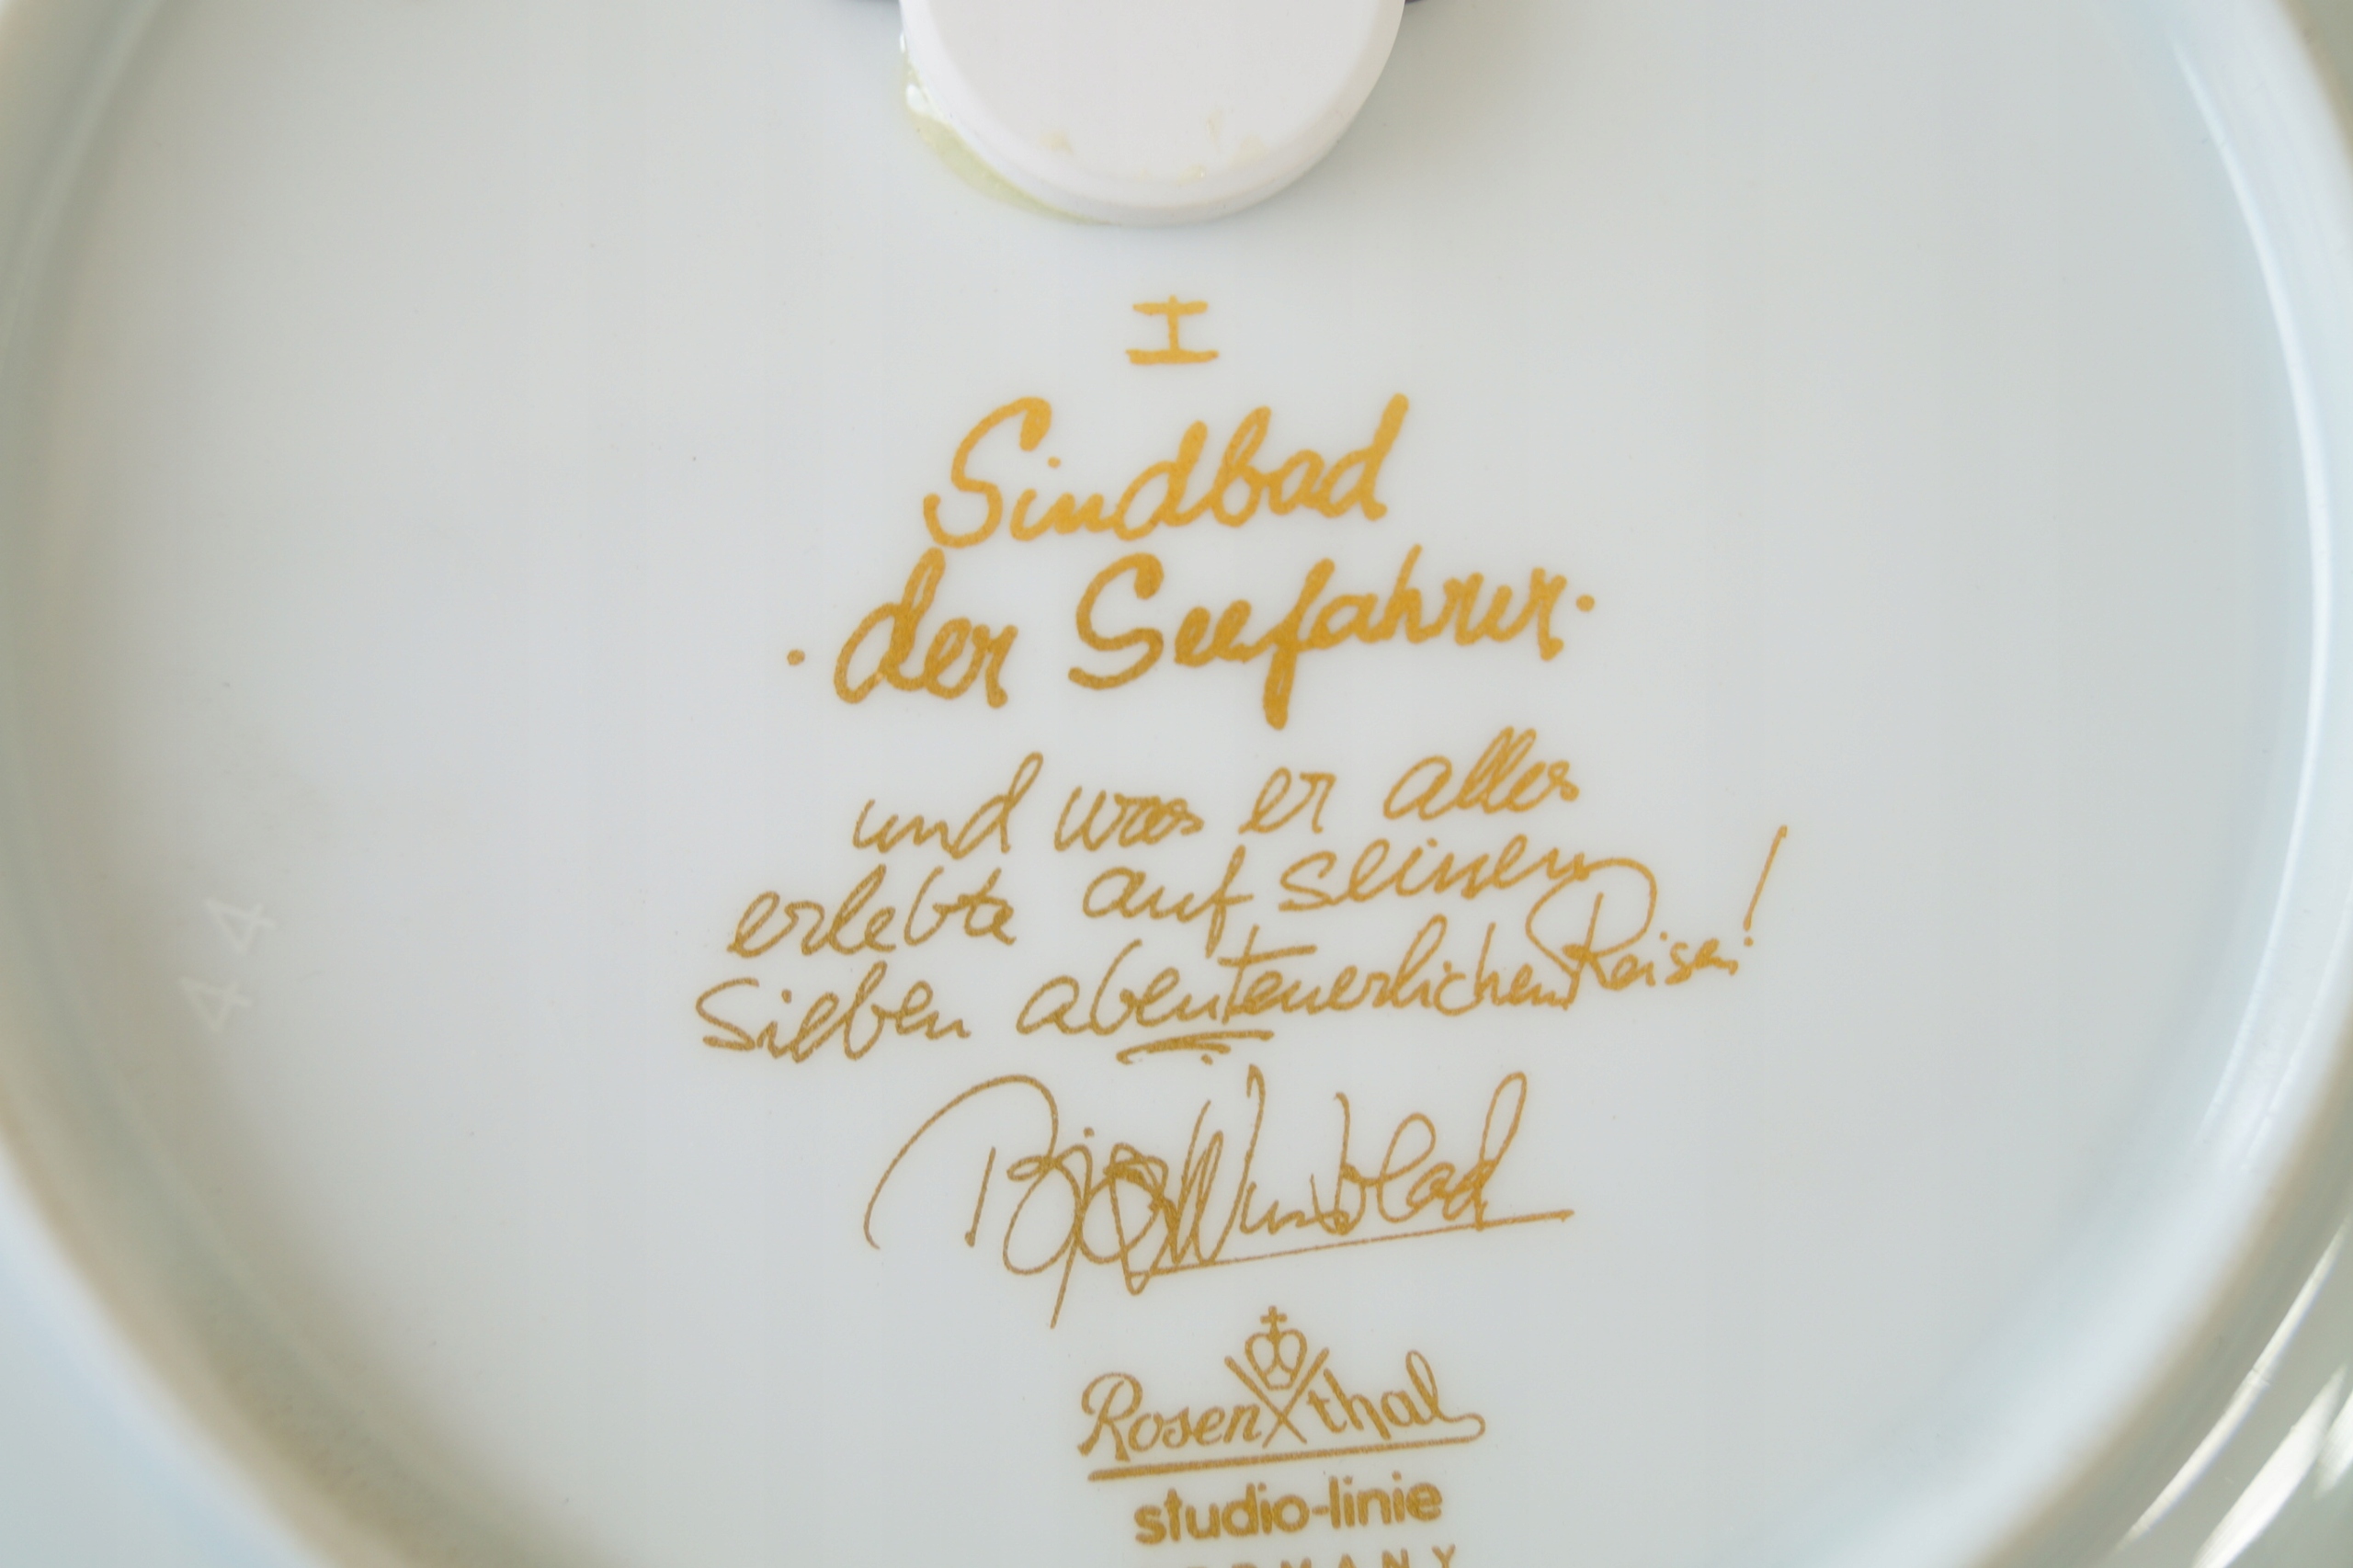 I
Sindbad
· der Seefahrer ·
und was er alles
erlebte auf seinen
sieben abenteuerlichen Reisen!
Bjørn Wiinblad
Rosenthal
studio-linie
GERMANY
44